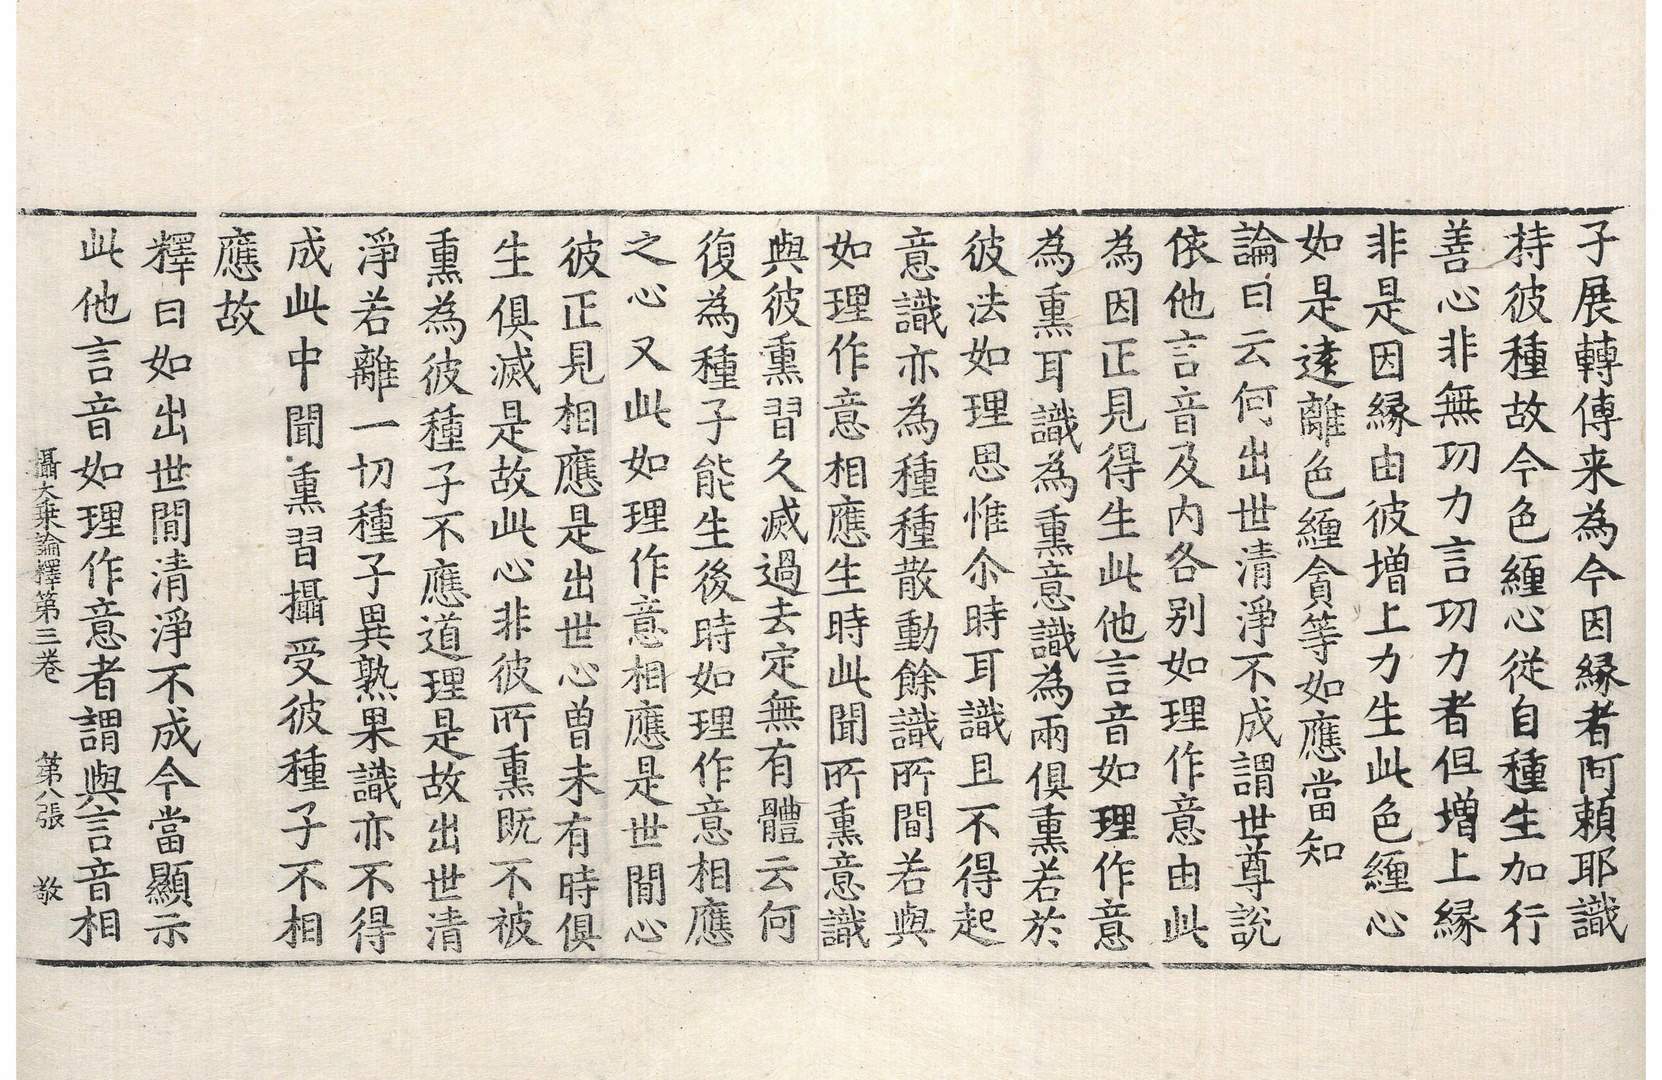 子展轉傳来為今因縁者阿頼耶識
持彼種故今色纏心從自種生加行
善心非無功力言功力者但增上縁
非是因縁由彼增上力生此色纏心
如是遠離色纏貪等如應當知
論曰云何出世清淨不成謂世尊説
依他言音及内各別如理作意由此
為因正見得生此他言音如理作意
為熏耳識為熏意識為兩俱熏若於
彼法如理思惟尒時耳識且不得起
意識亦為種種散動餘識所間若與
如理作意相應生時此聞所熏意識
與彼熏習久滅過去定無有體云何
復為種子能生後時如理作意相應
之心又此如理作意相應是世間心
彼正見相應是出世心曾未有時俱
生俱滅是故此心非彼所熏既不被
熏為彼種子不應道理是故出世清
淨若離一切種子異熟果識亦不得
成此中聞熏習攝受彼種子不相
應故
釋曰如出世間清淨不成今當顯示
此他言音如理作意者謂與言音相
攝大乗論釋第三卷 第八張 敬